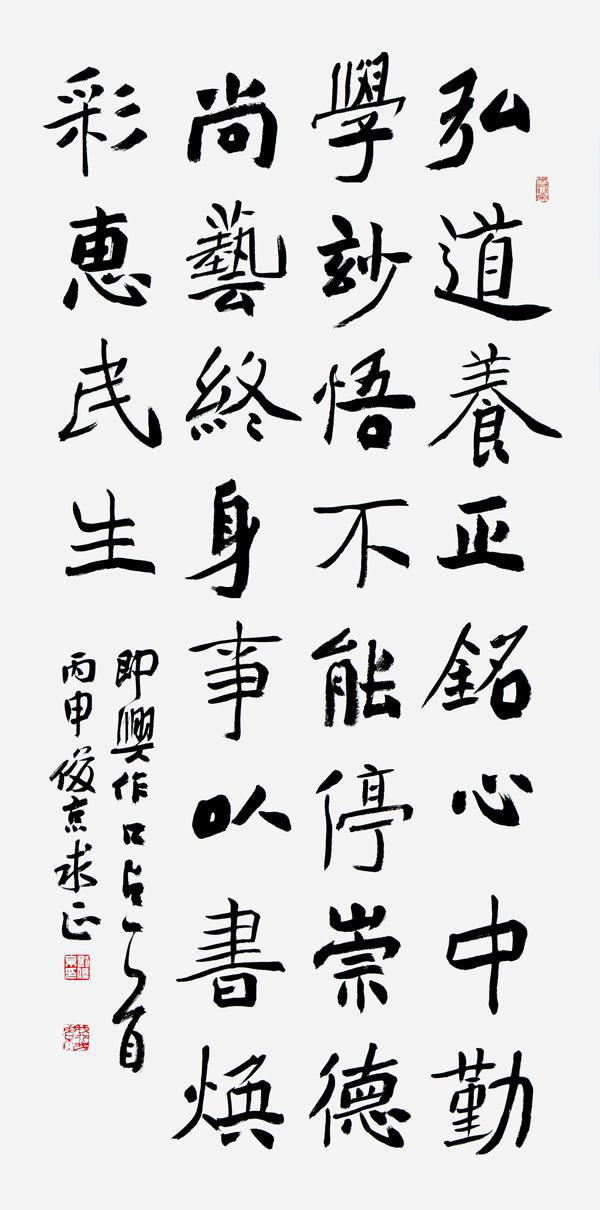 弘道養正銘心中勤
學玅悟不能停崇德
尚藝終身事以書煥
彩惠民生
即興作口占一首
丙申俊京求正